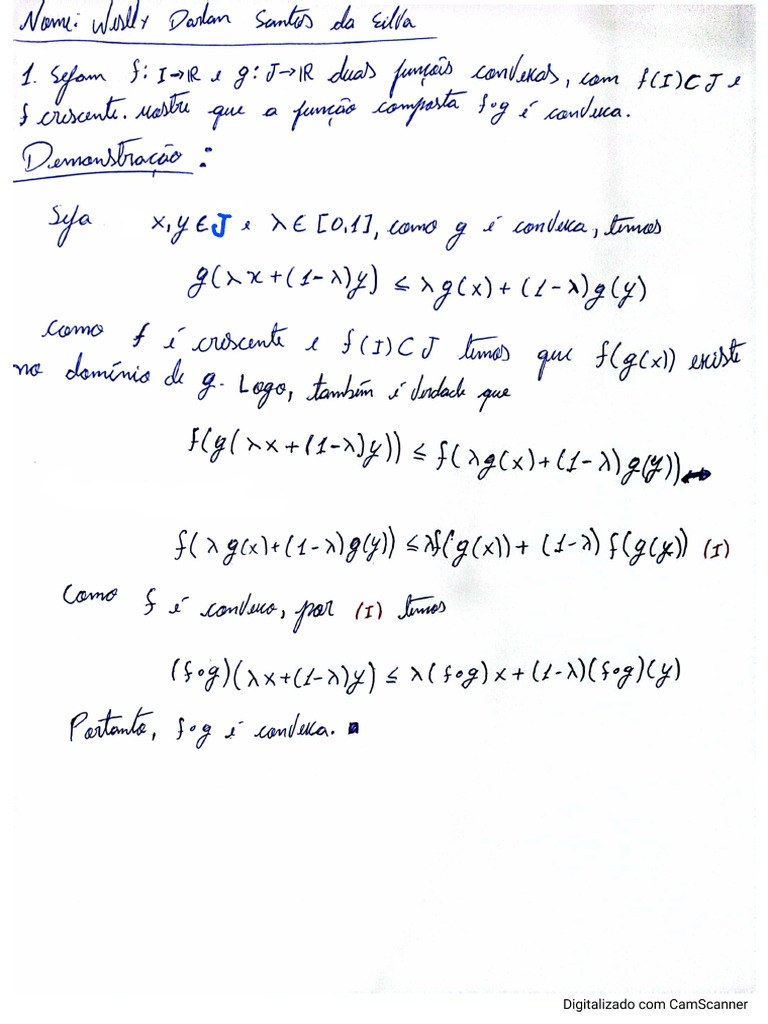 Nome: Weslly Darlan Santos da Silva
1. Sejam f: I→ℝ e g: J→ℝ duas funções convexas, com f(I)⊂J e
f crescente. Mostre que a função composta f∘g é convexa.
Demonstração:
Seja x,y∈J e λ∈[0,1], como g é convexa, temos
g(λx+(1-λ)y) ≤ λg(x)+(1-λ)g(y)
Como f é crescente e f(I)⊂J temos que f(g(x)) existe
no domínio de g. Logo, também é verdade que
f(g(λx+(1-λ)y)) ≤ f(λg(x)+(1-λ)g(y))
f(λg(x)+(1-λ)g(y)) ≤ λf(g(x))+(1-λ)f(g(y)) (I)
Como f é convexo, por (I) temos
(f∘g)(λx+(1-λ)y) ≤ λ(f∘g)x+(1-λ)(f∘g)(y)
Portanto, f∘g é convexa. ∎
Digitalizado com CamScanner